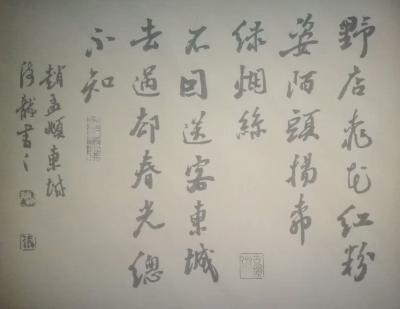 野店桃花紅粉
姿陌頭楊柳
綠烟絲
不因送客東城
去過却春光總
不知
趙孟頫東城
龍書之